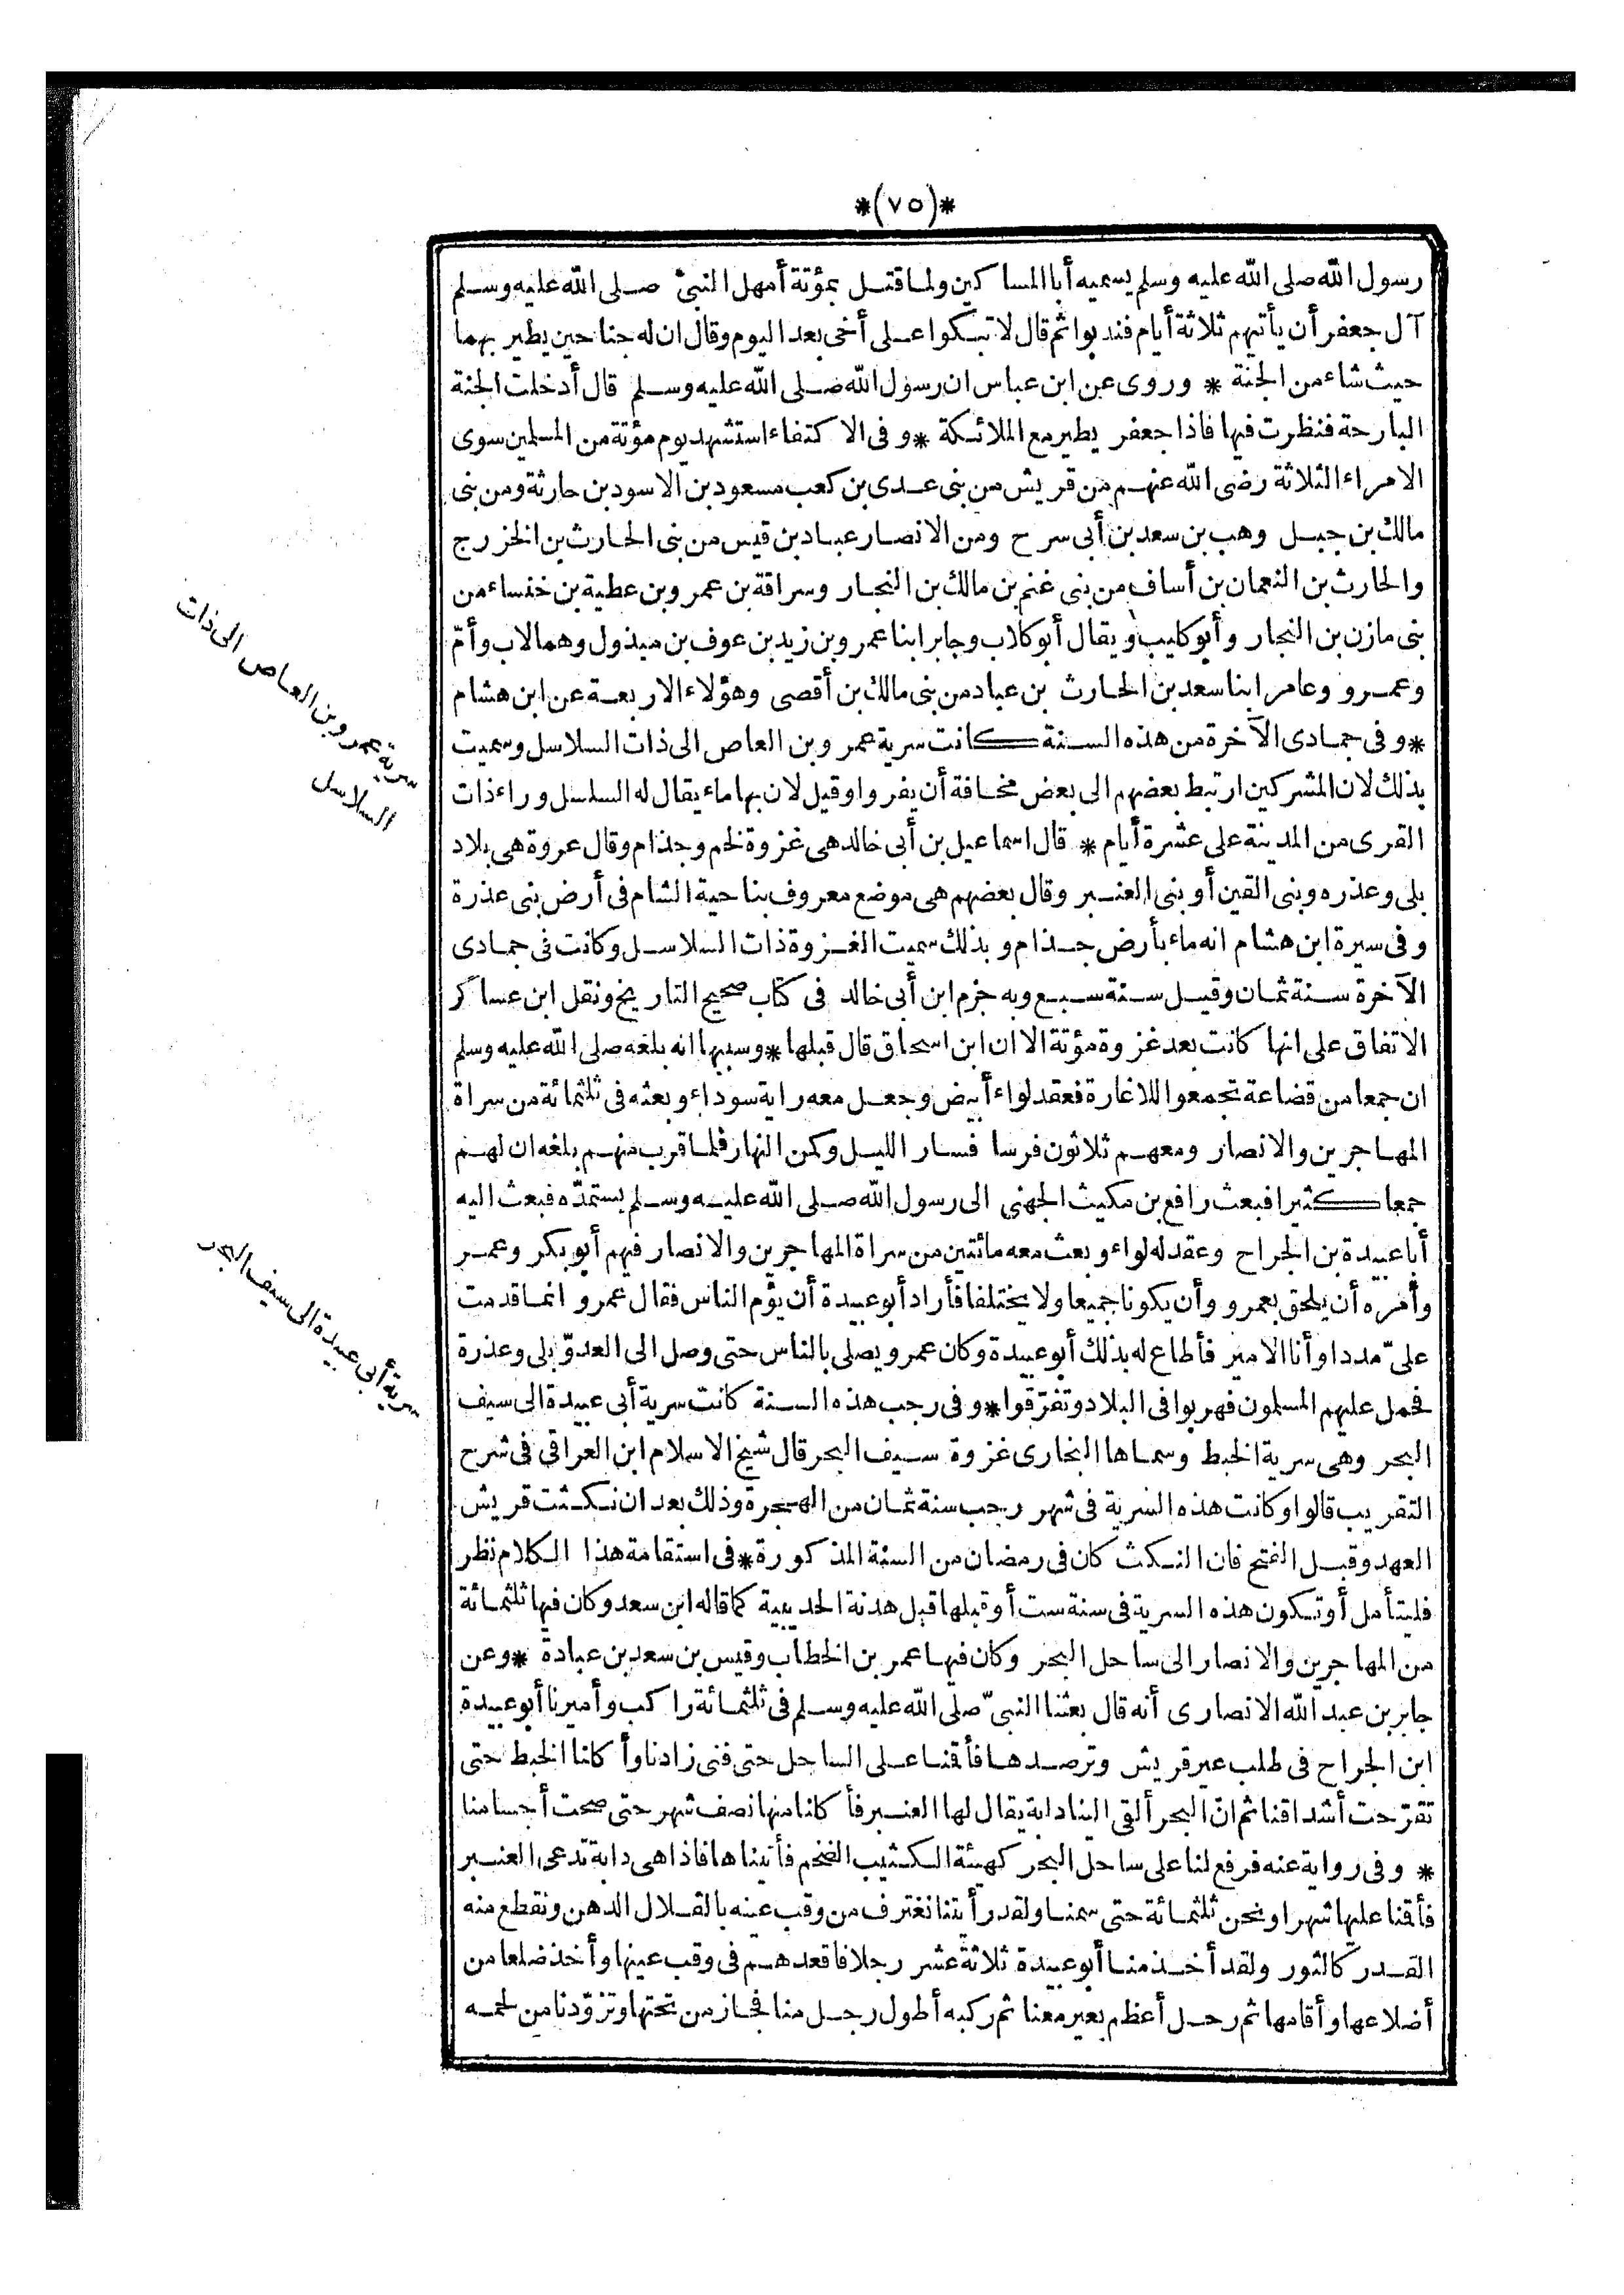 *(٧٥)*
رسول الله صلى الله عليه وسلم يسميه أبا المساكين ولما قتل بمؤتة أمهل النبىّ صلى الله عليه وسلم
آل جعفر أن يأتيهم ثلاثة أيام فندبوا ثم قال لا تبكوا على أخى بعد اليوم وقال ان له جناحين يطير بهما
حيث شاء من الجنة * وروى عن ابن عباس ان رسول الله صلى الله عليه وسلم قال أدخلت الجنة
البارحة فنظرت فيها فاذا جعفر يطير مع الملائكة * وفى الاكتفاء استشهد يوم مؤتة من المسلمين سوى
الامراء الثلاثة رضى الله عنهم من قريش من بنى عدى بن كعب مسعود بن الاسود بن حارثة ومن بنى
مالك بن جبل وهب بن سعد بن أبى سرح ومن الانصار عباد بن قيس من بنى الحارث بن الخزرج
والحارث بن النعمان بن أساف من بنى غنم بن مالك بن النجار وسراقة بن عمرو بن عطية بن خنساء من
بنى مازن بن النجار وأبو كليب ويقال أبو كلاب وجابر ابنا عمرو بن زيد بن عوف بن مبذول وهما لاب وأمّ
وعمرو وعامر ابنا سعد بن الحارث بن عباد من بنى مالك بن أقصى وهؤلاء الاربعة عن ابن هشام
* وفى جمادى الآخرة من هذه السنة كانت سرية عمرو بن العاص الى ذات السلاسل وسميت
بذلك لان المشركين ارتبط بعضهم الى بعض مخافة أن يفروا وقيل لان بها ماء يقال له السلسل وراء ذات
القرى من المدينة على عشرة أيام * قال اسماعيل بن أبى خالد هى غزوة لخم وجذام وقال عروة هى بلاد
بلى وعذره وبنى القين أو بنى العنبر وقال بعضهم هى موضع معروف بناحية الشام فى أرض بنى عذرة
وفى سيرة ابن هشام انه ماء بأرض جذام وبذلك سميت الغزوة ذات السلاسل وكانت فى جمادى
الآخرة سنة ثمان وقيل سنة سبع وبه جزم ابن أبى خالد فى كتاب صحيح التاريخ ونقل ابن عساكر
الاتفاق على انها كانت بعد غزوة مؤتة الا ان ابن اسحاق قال قبلها * وسببها انه بلغه صلى الله عليه وسلم
ان جمعا من قضاعة تجمعوا للاغارة فعقد لواء أبيض وجعل معه راية سوداء وبعثه فى ثلثمائة من سراة
المهاجرين والانصار ومعهم ثلاثون فرسا فسار الليل وكمن النهار فلما قرب منهم بلغه ان لهم
جمعا كثيرا فبعث رافع بن مكيث الجهنى الى رسول الله صلى الله عليه وسلم يستمدّه فبعث اليه
أبا عبيدة بن الجراح وعقد له لواء وبعث معه مائتين من سراة المهاجرين والانصار فيهم أبو بكر وعمر
وأمره أن يلحق بعمرو وأن يكونا جميعا ولا يختلفا فأراد أبو عبيدة أن يؤم الناس فقال عمرو انما قدمت
علىّ مددا وأنا الامير فأطاع له بذلك أبو عبيدة وكان عمرو يصلى بالناس حتى وصل الى العدوّ بلى وعذرة
فحمل عليهم المسلمون فهربوا فى البلاد وتفرّقوا * وفى رجب هذه السنة كانت سرية أبى عبيدة الى سيف
البحر وهى سرية الخبط وسماها البخارى غزوة سيف البحر قال شيخ الاسلام ابن العراقى فى شرح
التقريب قالوا وكانت هذه السرية فى شهر رجب سنة ثمان من الهجرة وذلك بعد ان نكثت قريش
العهد وقبل الفتح فان النكث كان فى رمضان من السنة المذكورة * فى استقامة هذا الكلام نظر
فليتأمل أو تكون هذه السرية فى سنة ست أو قبلها قبل هدنة الحديبية كما قاله ابن سعد وكان فيها ثلثمائة
من المهاجرين والانصار الى ساحل البحر وكان فيها عمر بن الخطاب وقيس بن سعد بن عبادة * وعن
جابر بن عبد الله الانصارى أنه قال بعثنا النبىّ صلى الله عليه وسلم فى ثلثمائة راكب وأميرنا أبو عبيدة
ابن الجراح فى طلب عير قريش وترصدها فأقنا على الساحل حتى فنى زادنا وأكلنا الخبط حتى
تقرّحت أشداقنا ثم انّ البحر ألقى الينا دابة يقال لها العنبر فأكلنا منها نصف شهر حتى صحت أجسامنا
* وفى رواية عنه فرفع لنا على ساحل البحر كهيئة الكثيب الضخم فأتيناها فاذا هى دابة تدعى العنبر
فأقنا عليها شهرا ونحن ثلثمائة حتى سمنا ولقد رأيتنا نغترف من وقب عينه بالقلال الدهن ونقطع منه
القدر كالثور ولقد أخذ منا أبو عبيدة ثلاثة عشر رجلا فاقعدهم فى وقب عينها وأخذ ضلعا من
أضلاعها وأقامها ثم رحل أعظم بعير معنا ثم ركبه أطول رجل منا فجاز من تحتها وتزوّدنا من لحمه
سرية عمرو بن العاص الى ذات
السلاسل
سرية أبى عبيدة الى سيف البحر